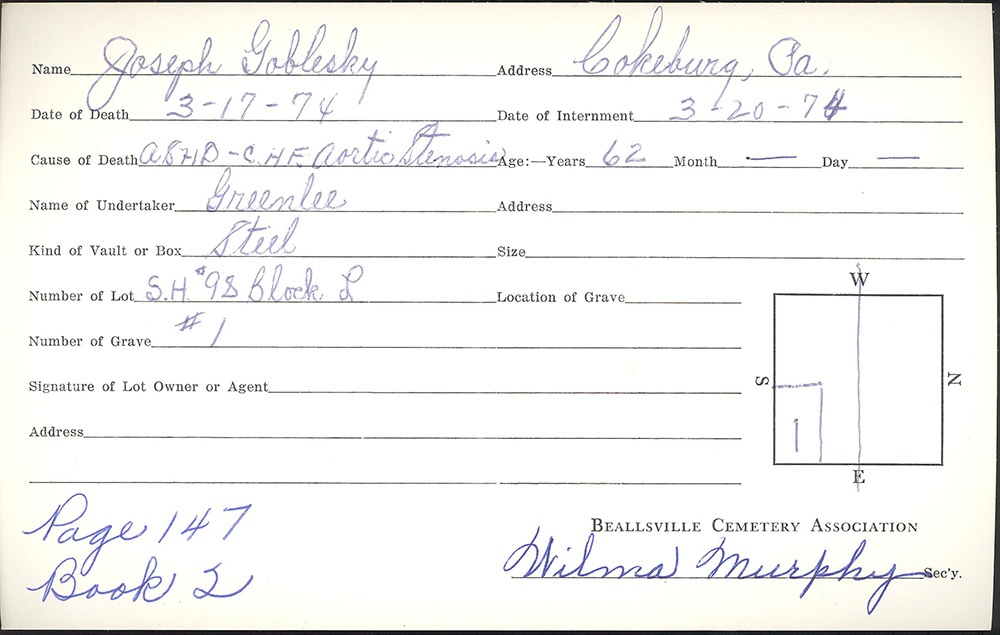 Name Joseph Goblesky Address Cokeburg, Pa.
Date of Death 3-17-74 Date of Internment 3-20-74
Cause of Death ASHD - C.H.F. Aortic Stenosis Age:—Years 62 Month — Day —
Name of Undertaker Greenlee Address
Kind of Vault or Box Steel Size
Number of Lot S.H. #98 Block L Location of Grave
Number of Grave #1
Signature of Lot Owner or Agent
Address
W
S N
1
E
Page 147
Book 2
BEALLSVILLE CEMETERY ASSOCIATION
Wilma Murphy Sec'y.